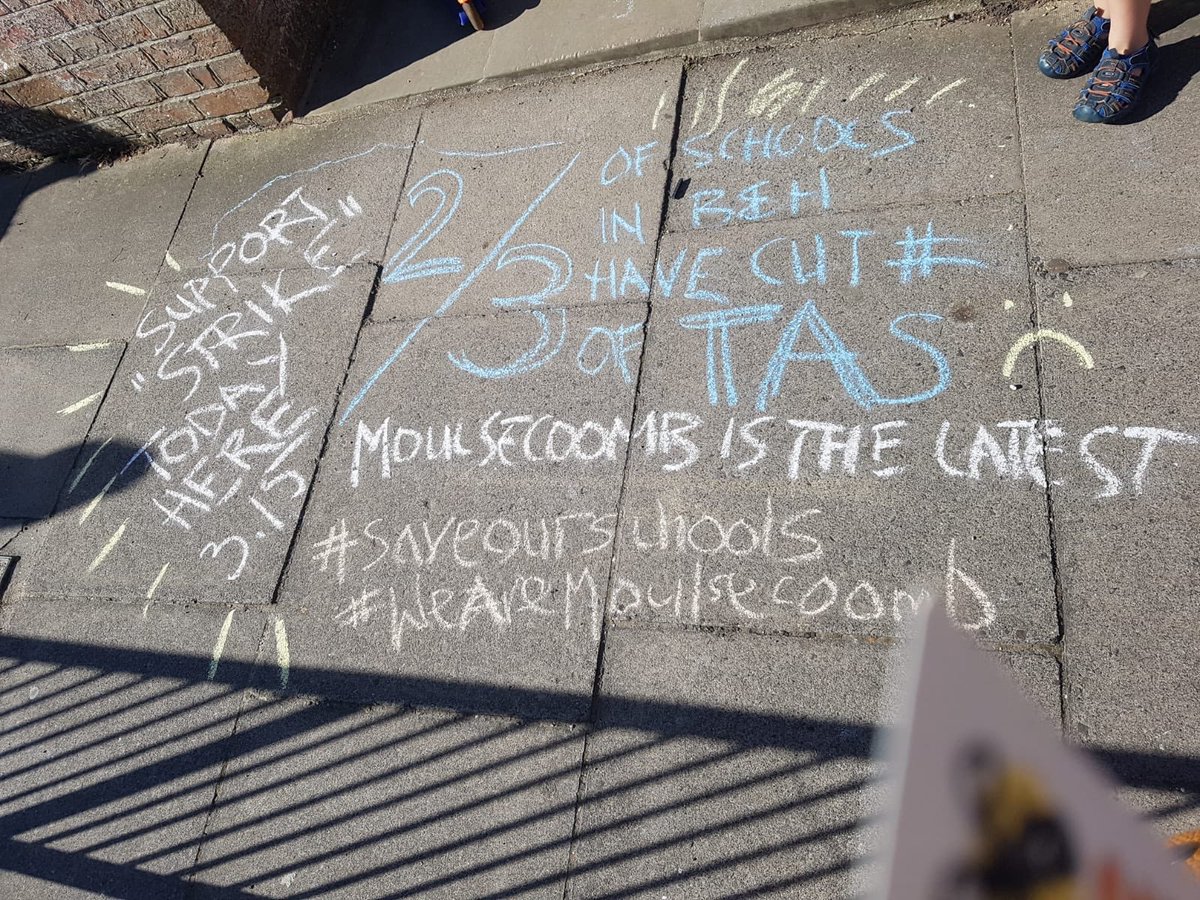 SUPPORT
"STRIKE"
TODAY
HERE
3.15!
2/3 OF SCHOOLS
IN B&H
HAVE CUT #
OF TAS
MOULSECOOMB IS THE LATEST
#saveourschools
#WeAreMoulsecoomb